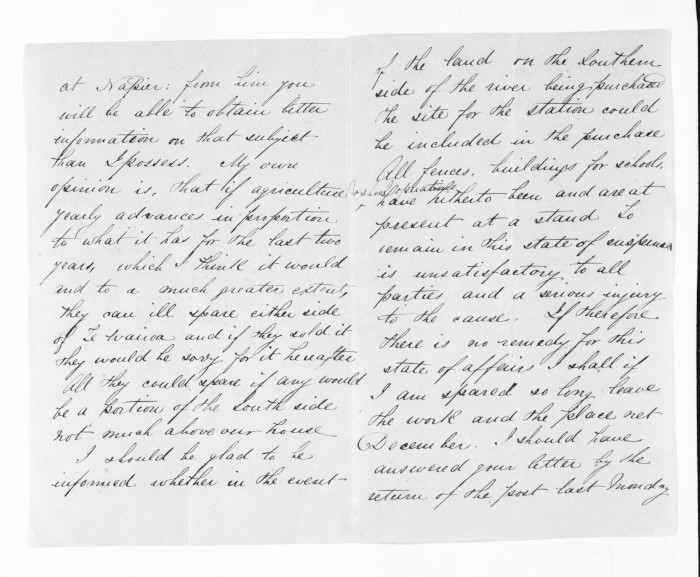 at Napier: from him you
will be able to obtain better
information on that subject
than I possess. My own
opinion is, that if agriculture
yearly advances in proportion
to what it has for the last two
years, which I think it would
and to a much greater extent,
they can ill spare either side
of Te Wairoa and if they sold it
they would be sorry for it hereafter
All they could spare if any would
be a portion of the South side
not much above our house
I should be glad to be
informed whether in the event
of the land on the Southern
side of the river being purchased
the site for the station could
be included in the purchase
All fences, buildings for schools,
have hitherto been and are at
present at a stand To
remain in this state of suspense
is unsatisfactory to all
parties and a serious injury
to the cause. If therefore
there is no remedy for this
state of affairs I shall if
I am spared so long leave
the work and the place next
December. I should have
answered your letter by the
return of the post last Monday